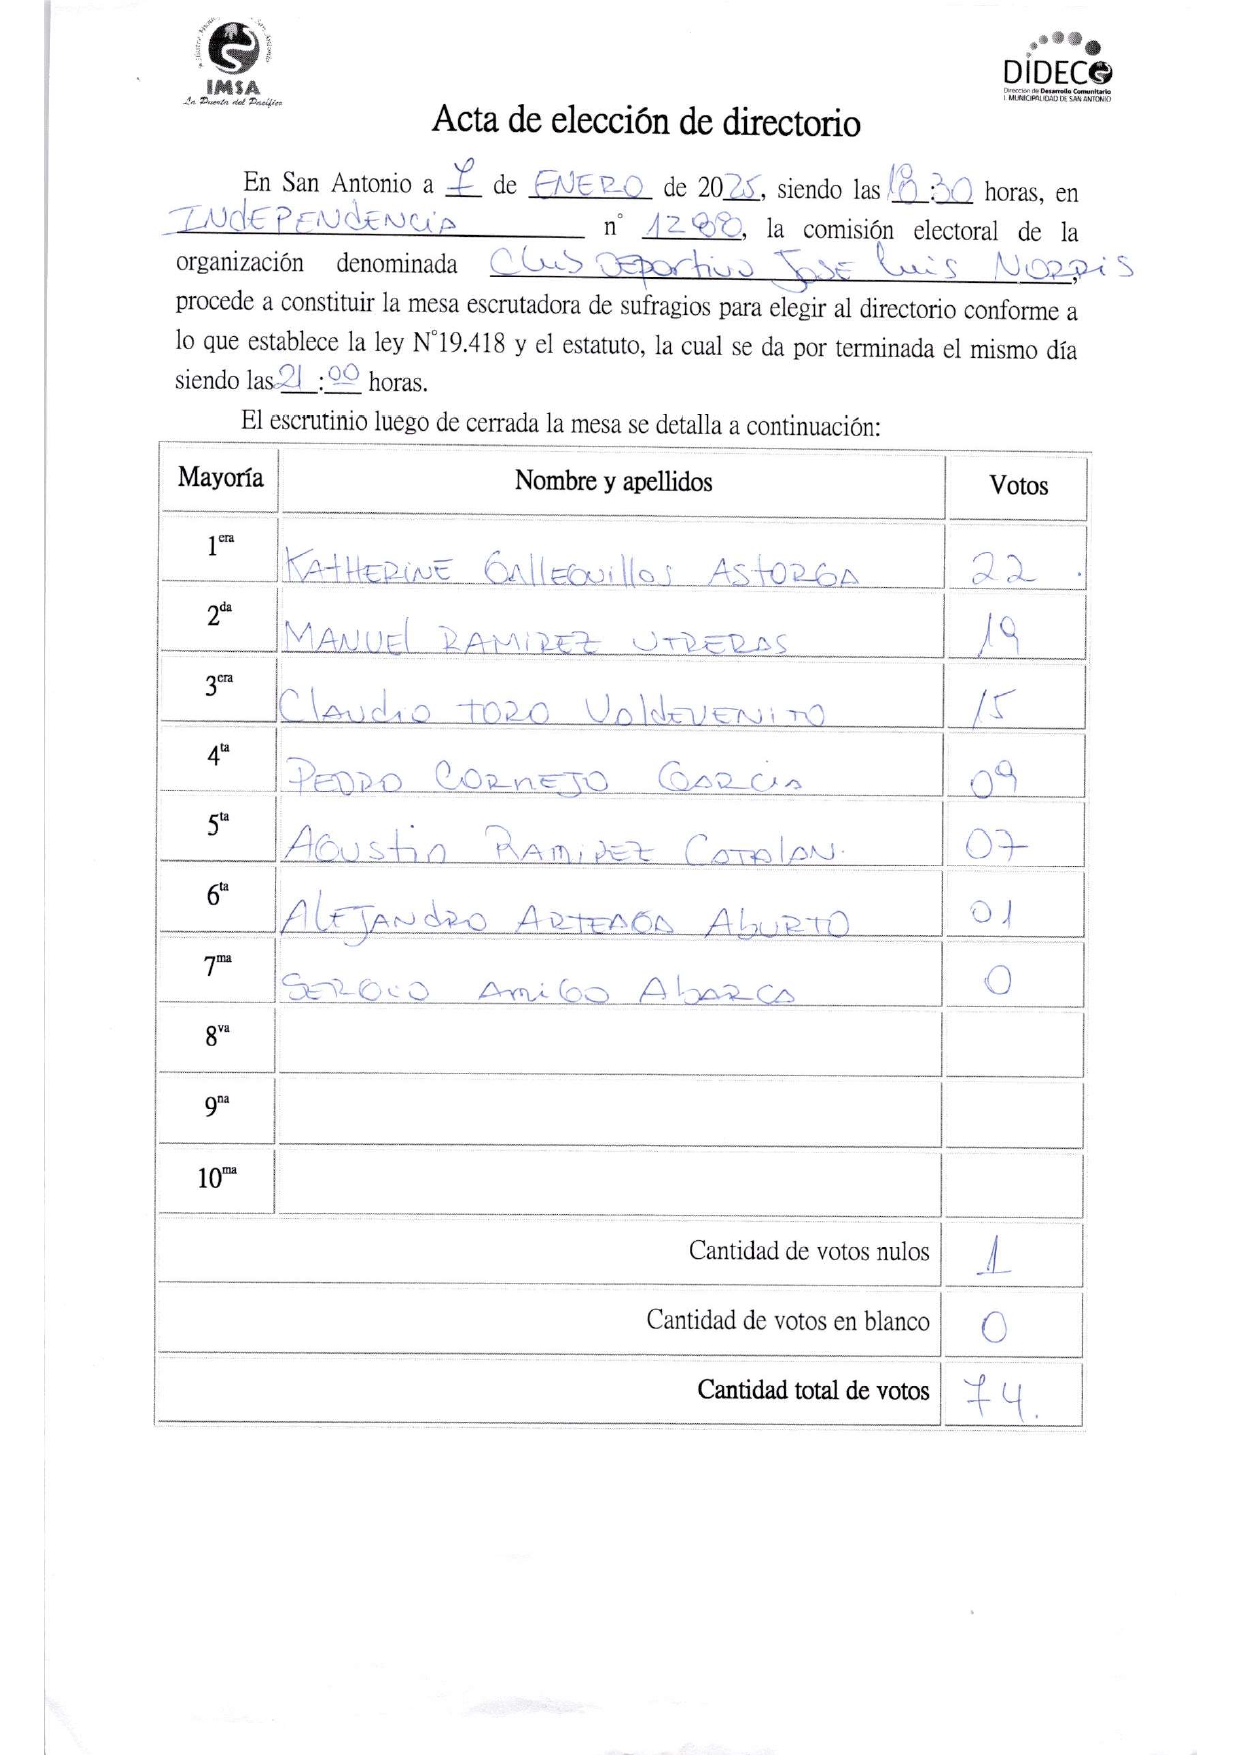 IMSA
La Puerta del Pacífico
DIDECO
Dirección de Desarrollo Comunitario
I. MUNICIPALIDAD DE SAN ANTONIO
Acta de elección de directorio
En San Antonio a 7 de ENERO de 2025, siendo las 18:30 horas, en
INdEPENdENCiA n° 1288, la comisión electoral de la
organización denominada Club DEportivo José Luis NORRiS,
procede a constituir la mesa escrutadora de sufragios para elegir al directorio conforme a
lo que establece la ley N°19.418 y el estatuto, la cual se da por terminada el mismo día
siendo las 21:00 horas.
El escrutinio luego de cerrada la mesa se detalla a continuación:
Mayoría Nombre y apellidos Votos
1era KATHERINE GAllEGuillos ASTORGA 22
2da MANUEl RAMIREZ UTRERAS 19
3era Claudio TORO ValdEVENiTO 15
4ta PEDRO CORNEJO GARCiA 09
5ta AGUstin RAMiREZ CATAlAN. 07
6ta AlEJANdRO ARTEAGA AbURTO 01
7ma SERGiO AmiGO AbARCA 0
8va
9na
10ma
Cantidad de votos nulos 1
Cantidad de votos en blanco 0
Cantidad total de votos 74.